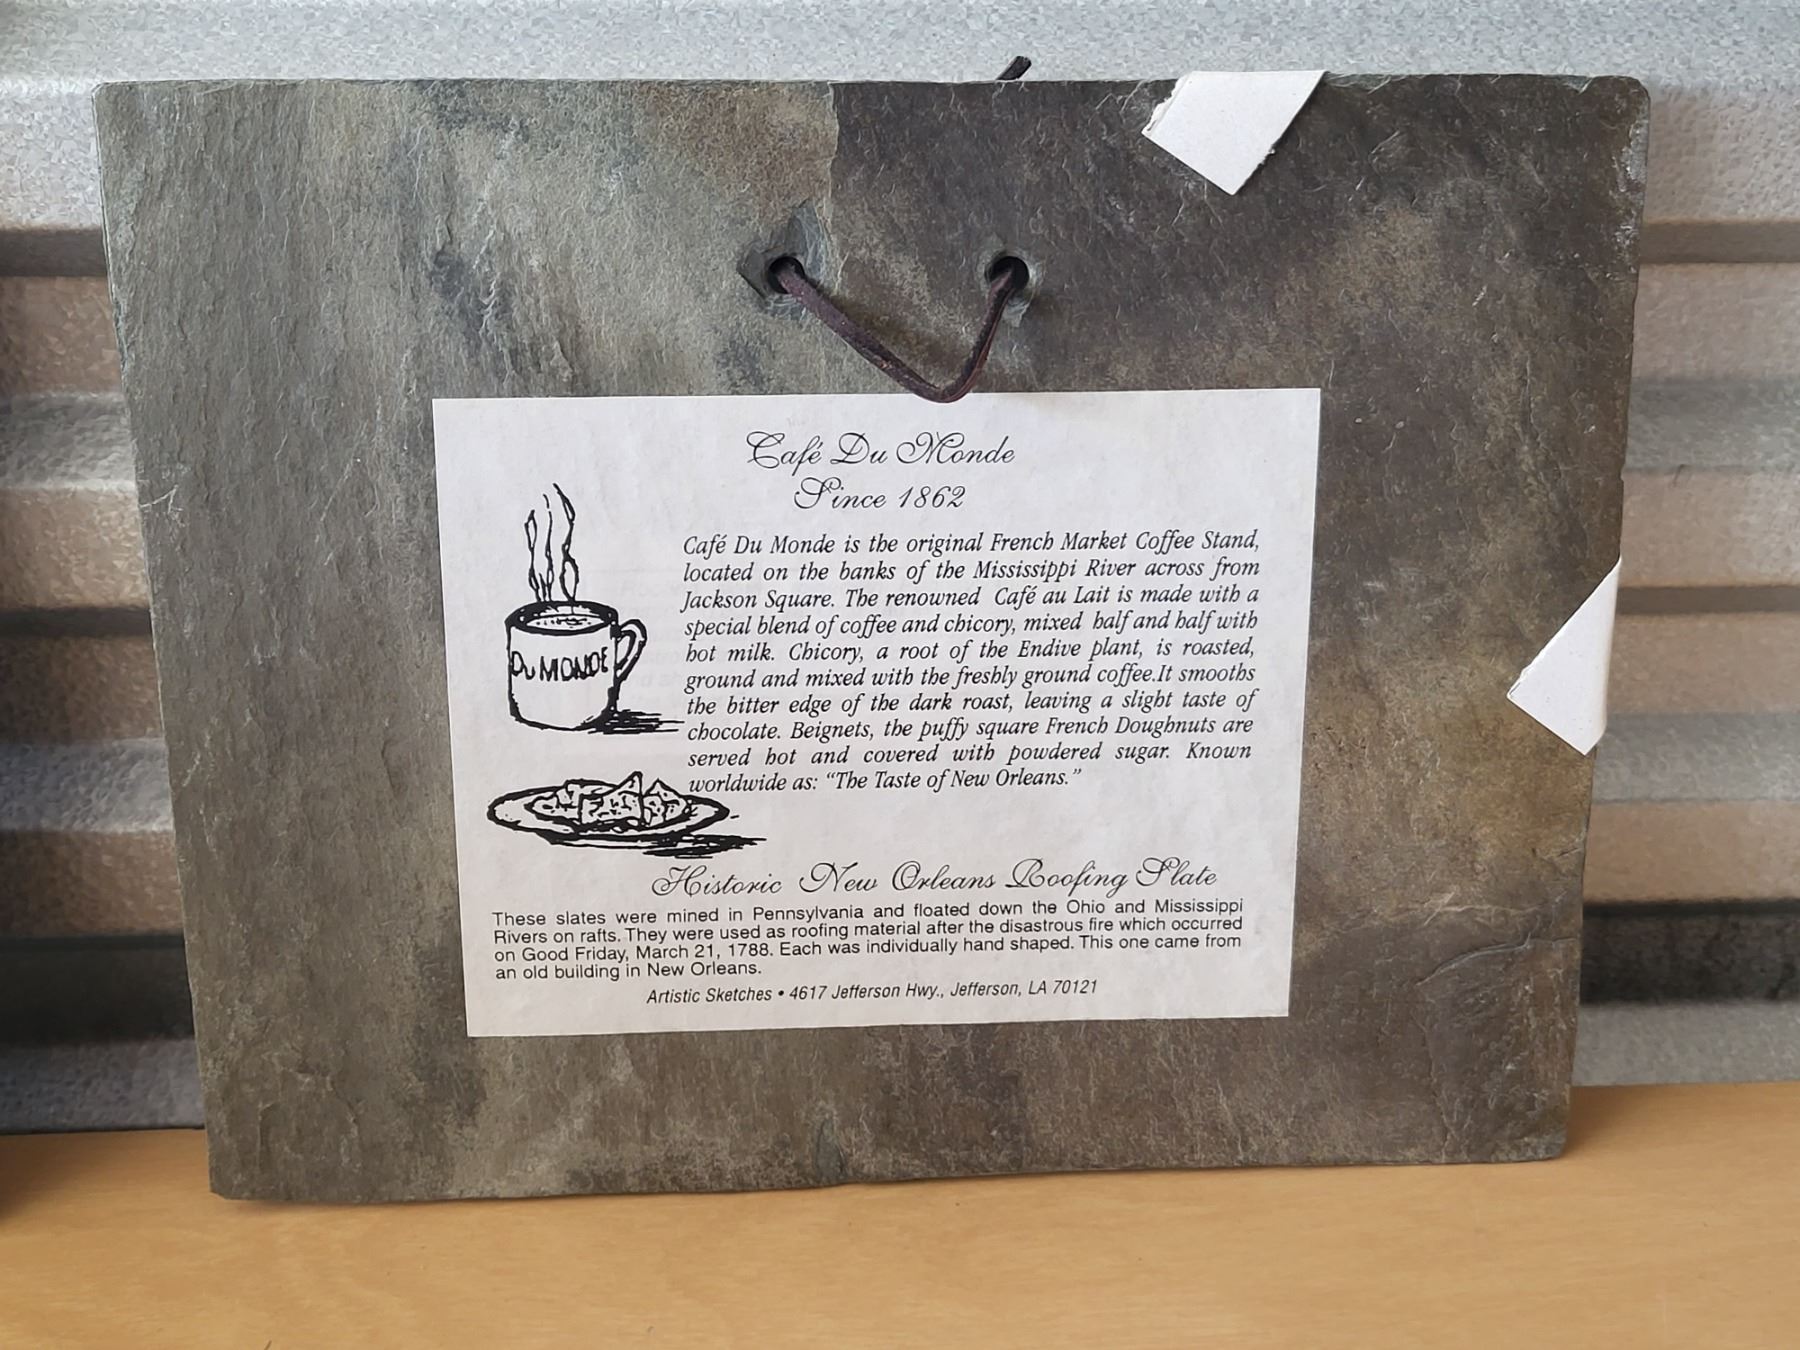 Café Du Monde
Since 1862
Café Du Monde is the original French Market Coffee Stand,
located on the banks of the Mississippi River across from
Jackson Square. The renowned Café au Lait is made with a
special blend of coffee and chicory, mixed half and half with
hot milk. Chicory, a root of the Endive plant, is roasted,
ground and mixed with the freshly ground coffee.It smooths
the bitter edge of the dark roast, leaving a slight taste of
chocolate. Beignets, the puffy square French Doughnuts are
served hot and covered with powdered sugar. Known
worldwide as: “The Taste of New Orleans.”
Du MONDE
Historic New Orleans Roofing Slate
These slates were mined in Pennsylvania and floated down the Ohio and Mississippi
Rivers on rafts. They were used as roofing material after the disastrous fire which occurred
on Good Friday, March 21, 1788. Each was individually hand shaped. This one came from
an old building in New Orleans.
Artistic Sketches • 4617 Jefferson Hwy., Jefferson, LA 70121